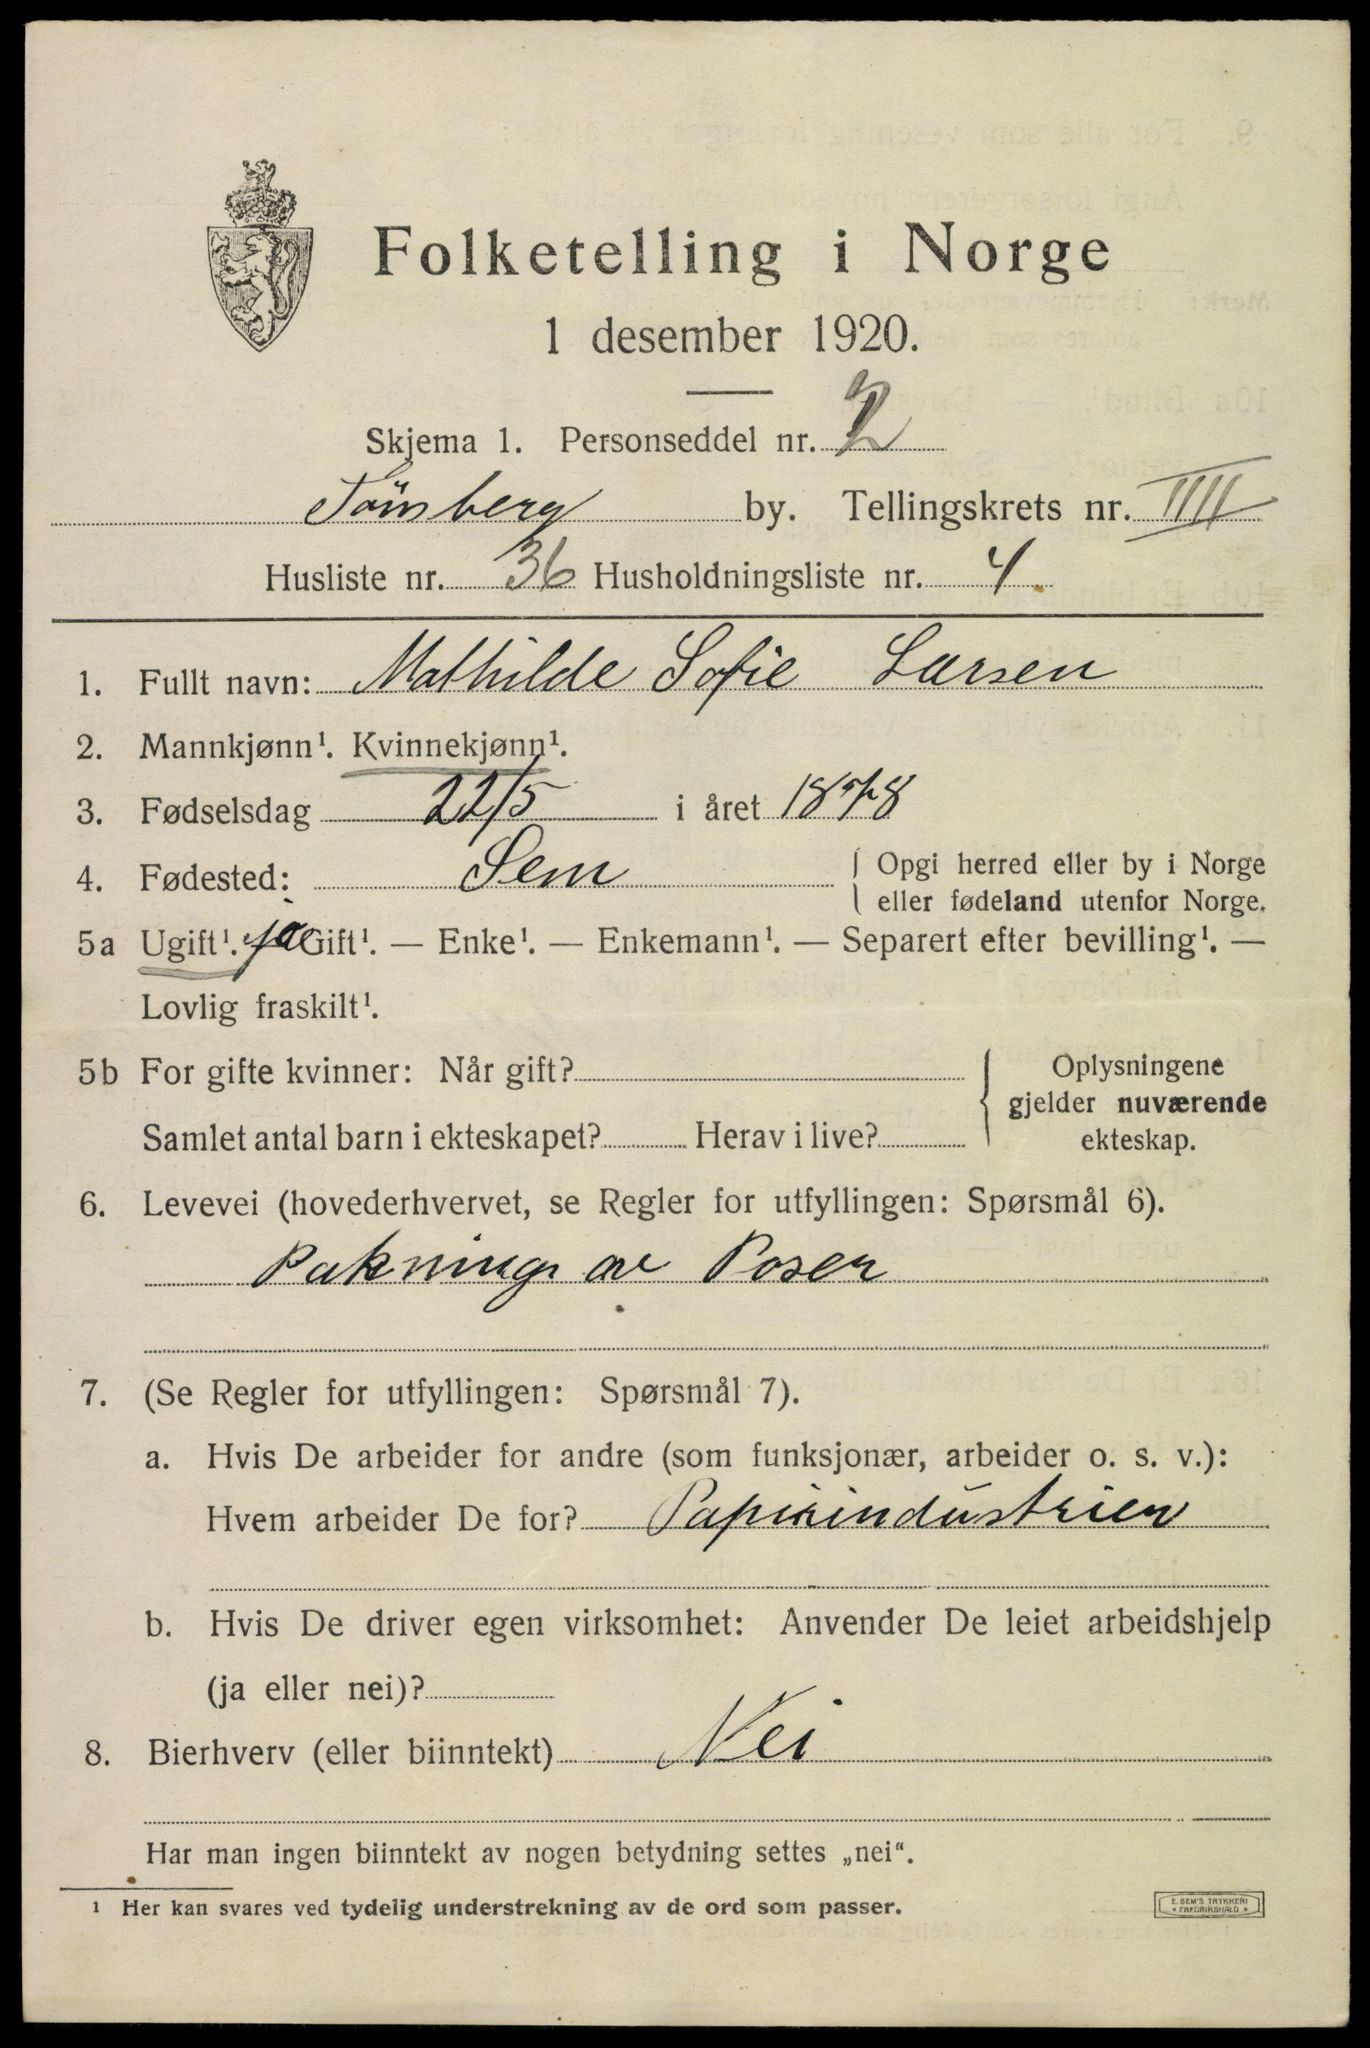 Folketelling i Norge
1 desember 1920.
Skjema 1. Personseddel nr. 2
Tönsberg by. Tellingskrets nr. IIII
Husliste nr. 36 Husholdningsliste nr. 4
1. Fullt navn: Mathilde Sofie Larsen
2. Mannkjønn¹. Kvinnekjønn¹.
3. Fødselsdag 22/5 i året 1878
4. Fødested: Sem { Opgi herred eller by i Norge
eller fødeland utenfor Norge.
5a Ugift¹. ja Gift¹. — Enke¹. — Enkemann¹. — Separert efter bevilling¹. —
Lovlig fraskilt¹.
5b For gifte kvinner: Når gift? { Oplysningene
gjelder nuværende
Samlet antal barn i ekteskapet? Herav i live? ekteskap.
6. Levevei (hovederhvervet, se Regler for utfyllingen: Spørsmål 6).
Pakning av Poser
7. (Se Regler for utfyllingen: Spørsmål 7).
a. Hvis De arbeider for andre (som funksjonær, arbeider o. s. v.):
Hvem arbeider De for? Papirindústrien
b. Hvis De driver egen virksomhet: Anvender De leiet arbeidshjelp
(ja eller nei)?
8. Bierhverv (eller biinntekt) Nei
Har man ingen biinntekt av nogen betydning settes „nei“.
¹ Her kan svares ved tydelig understrekning av de ord som passer.
E. SEM'S TRYKKERI
* FREDRIKSHALD *